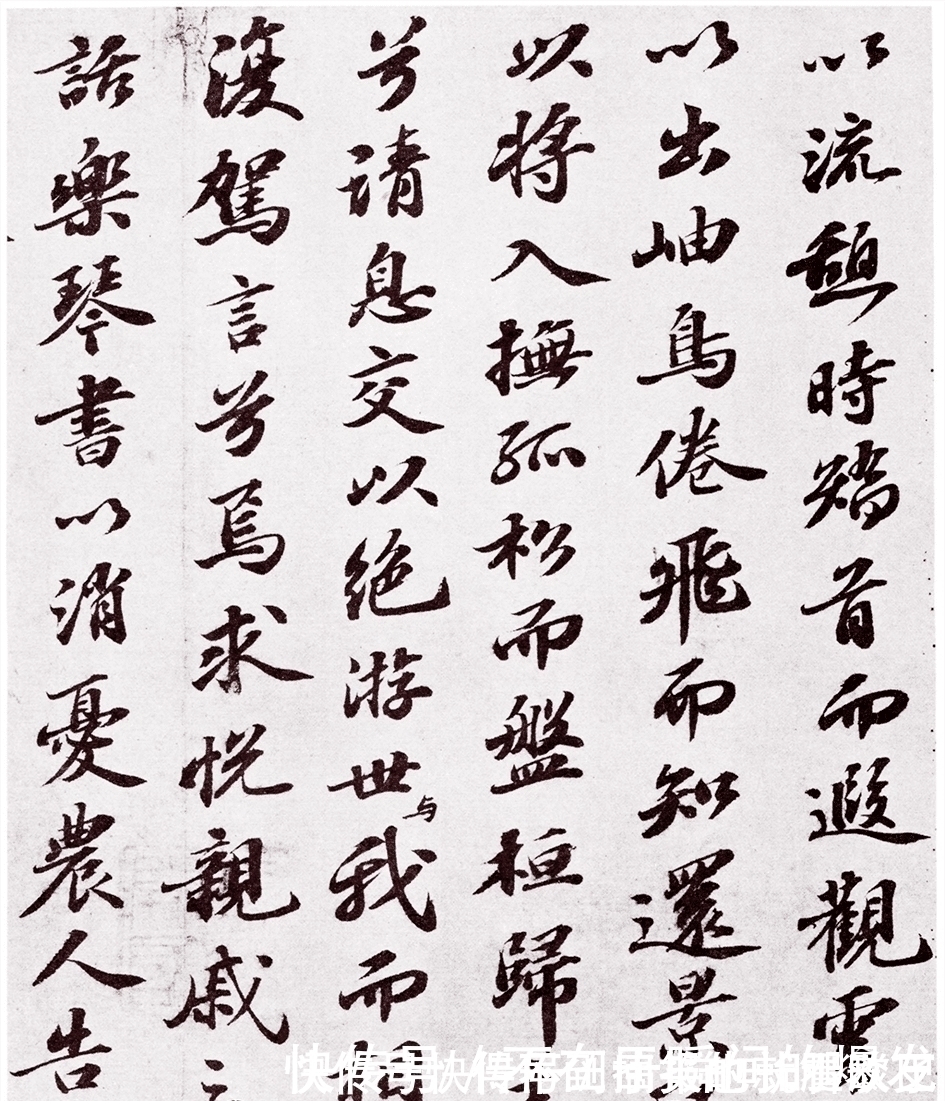 以流憩時矯首而遐觀雲
以出岫鳥倦飛而知還景
以將入撫孤松而盤桓歸
兮請息交以絕游世与我而
復駕言兮焉求悅親戚
話樂琴書以消憂農人告
快传号